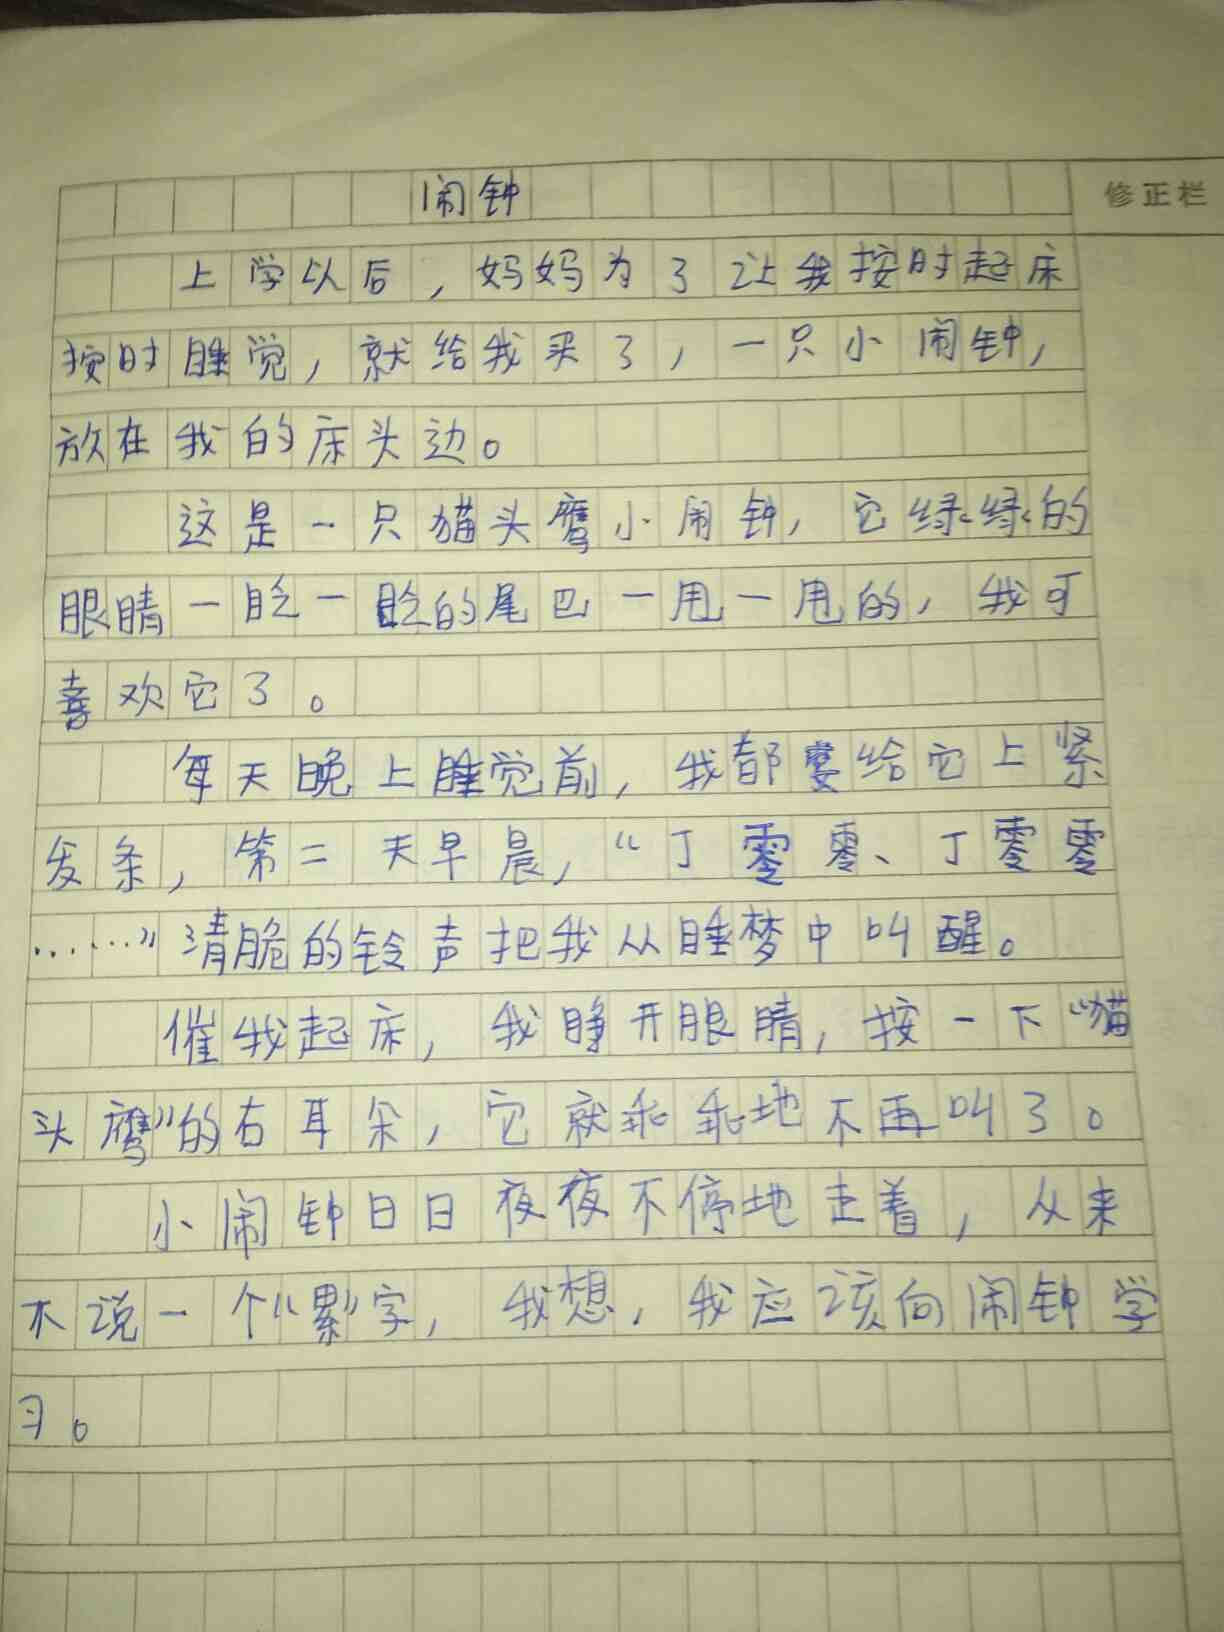 闹钟
修正栏
上学以后，妈妈为了让我按时起床
按时睡觉，就给我买了，一只小闹钟，
放在我的床头边。
这是一只猫头鹰小闹钟，它绿绿的
眼睛一眨一眨的尾巴一甩一甩的，我可
喜欢它了。
每天晚上睡觉前，我都要给它上紧
发条，第二天早晨，“丁零零、丁零零
……”清脆的铃声把我从睡梦中叫醒。
催我起床，我睁开眼睛，按一下“猫
头鹰”的右耳朵，它就乖乖地不再叫了。
小闹钟日日夜夜不停地走着，从来
不说一个“累”字，我想，我应该向闹钟学
习。